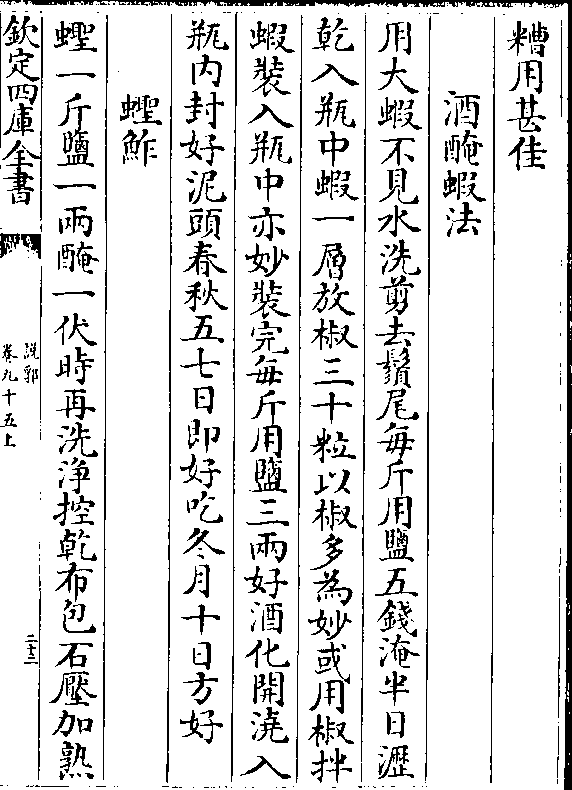 糟用甚佳
酒醃蝦法
用大蝦不見水洗剪去鬚尾每斤用鹽五錢淹半日瀝
乾入瓶中蝦一層放椒三十粒以椒多為妙或用椒拌
蝦裝入瓶中亦妙裝完每斤用鹽三兩好酒化開澆入
瓶内封好泥頭春秋五七日即好吃冬月十日方好
蟶鮓
蟶一斤鹽一兩醃一伏時再洗淨控乾布包石壓加熟
欽定四庫全書
說郛
卷九十五上
二十三